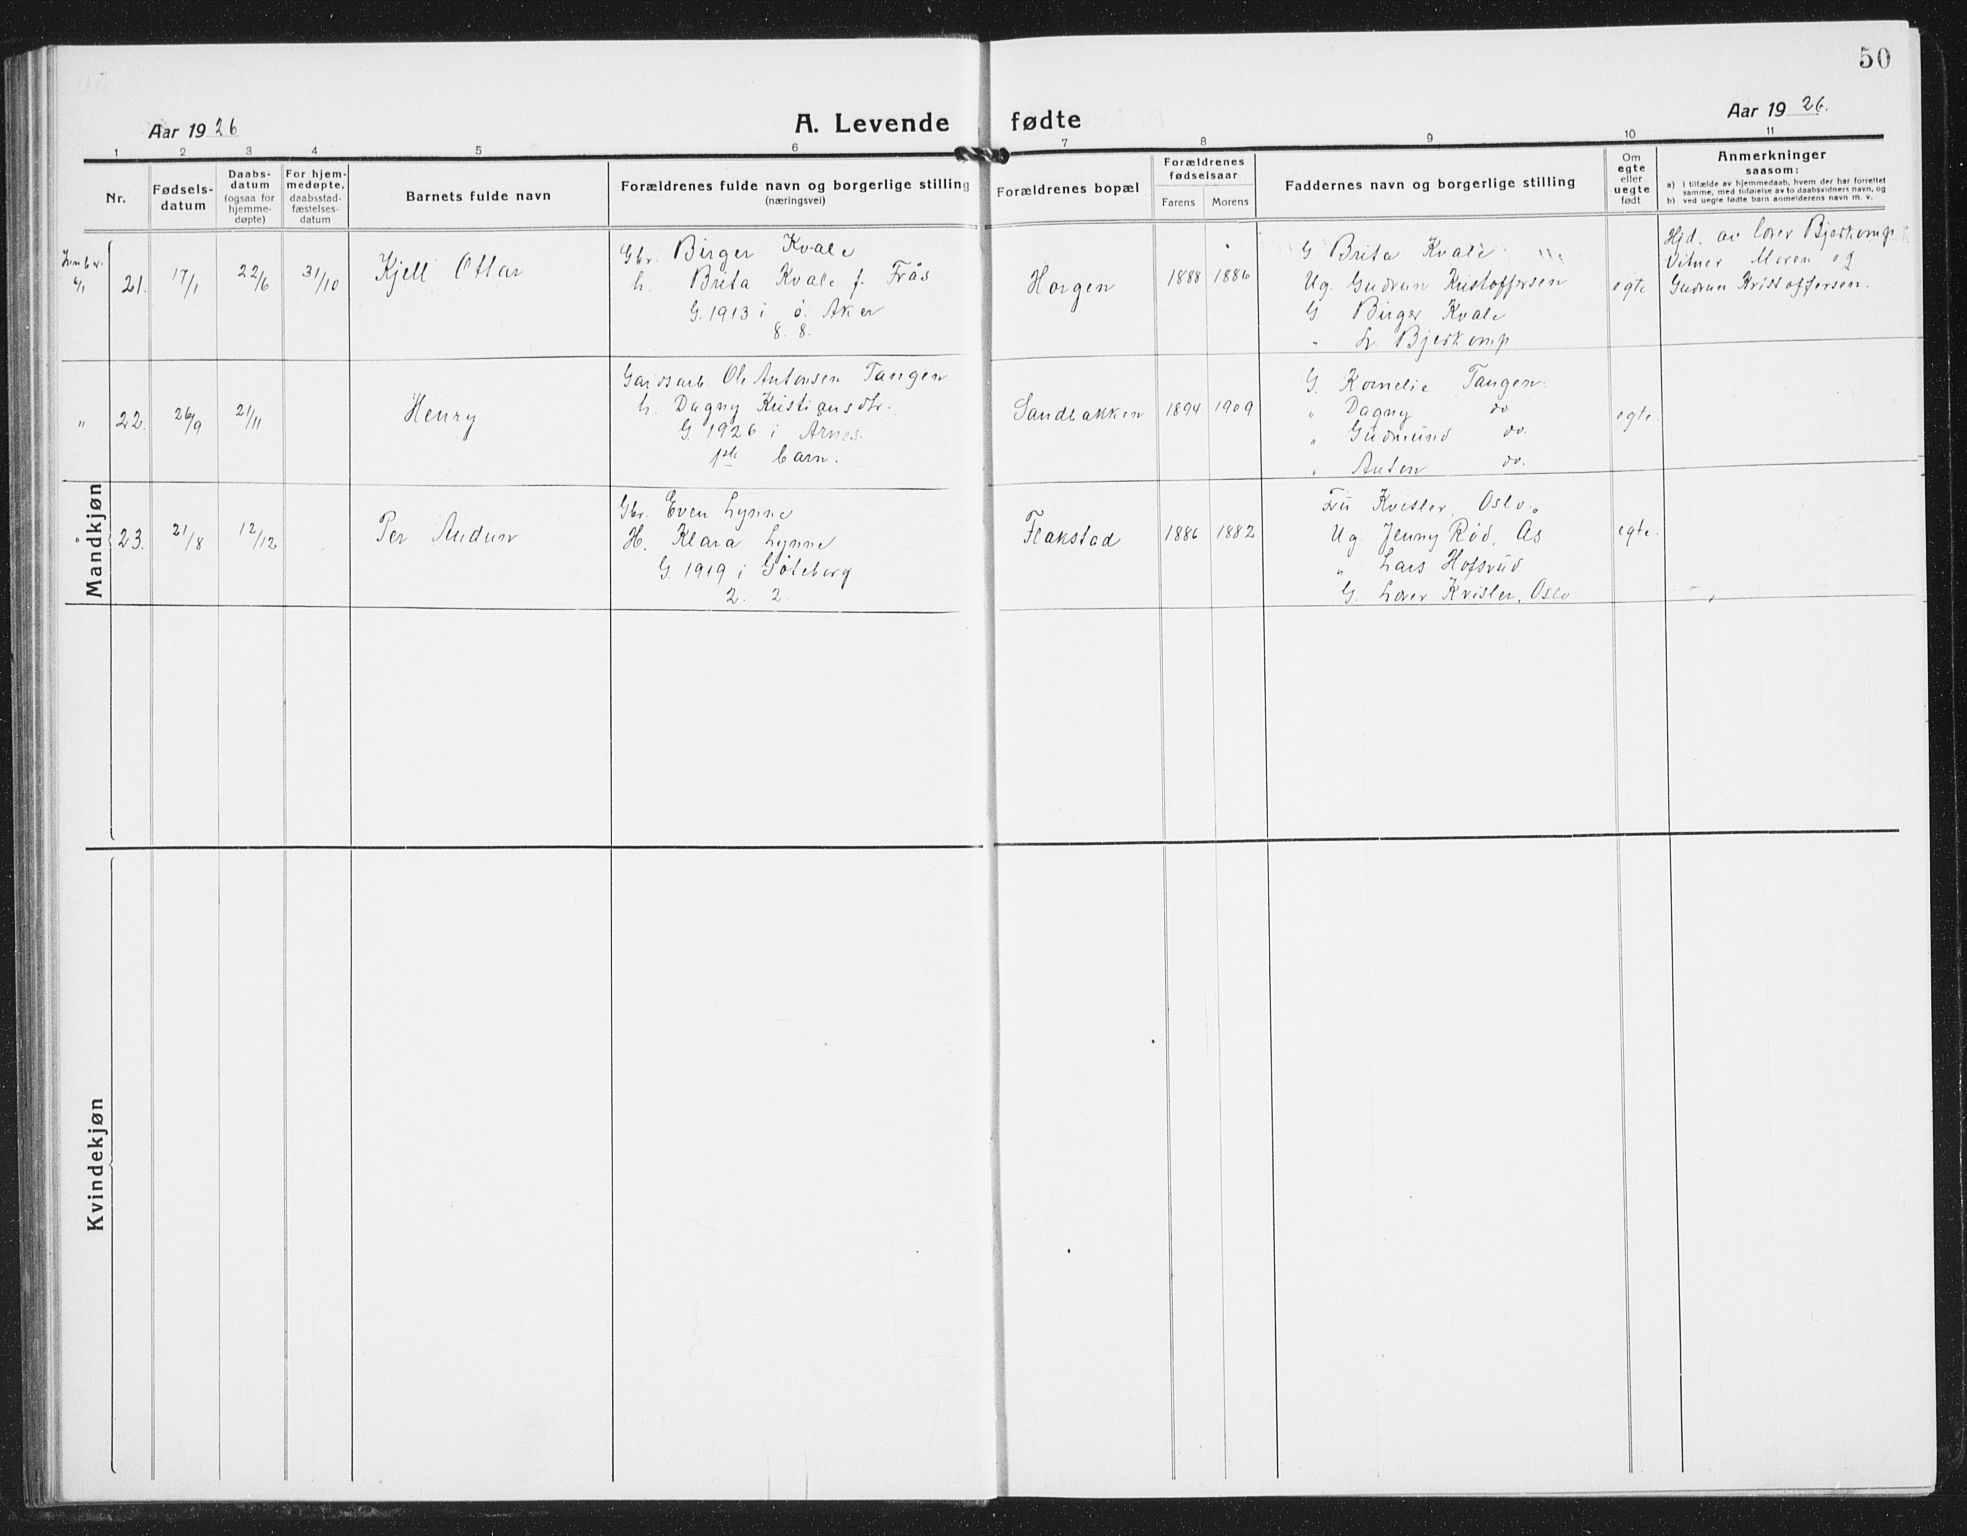 50
Aar 1926
A. Levende fødte
Aar 1926.
1 2 3 4 5 6 7 8 9 10 11
Nr.
Fødselsdatum
Daabsdatum
(ogsaa for
hjemmedøpte)
For hjemmedøpte,
daabsstadfæstelsesdatum
Barnets fulde navn
Forældrenes fulde navn og borgerlige stilling
(næringsvei)
Forældrenes bopæl
Forældrenes
fødselsaar
Farens Morens
Faddernes navn og borgerlige stilling
Om
egte
eller
uegte
født
Anmerkninger
saasom:
a) i tilfælde av hjemmedaab, hvem der har forrettet
samme, med tilføielse av to daabsvidners navn, og
b) ved uegte fødte barn anmelderens navn m. v.
Mandkjøn
21.
17/1
22/6
31/10
Kjell Ottar
Gbr. Birger Kvale
h. Brita Kvale f. Frås
G. 1913 i ø. Aker
8. 8.
Horgen
1888 1886
G Brita Kvale
Ug. Gudrun Kristoffersen
G Birger Kvale
" Bjerkomp
egte
Hjd. av lærer Bjerkomp
Vitner Maren og
Gudrun Kristoffersen.
"
22.
26/9
21/11
Henry
Gardsarb. Ole Antonsen Tangen
h. Dagny Kristiansdtr.
G. 1926 i Arnes.
1ste barn.
Sandbakken
1894 1909
G. Kornelie Tangen.
" Dagny do
" Gudmund do.
" Anton do.
egte.
"
23.
21/8
12/12
Per Audun
Gbr. Even Lynne
H. Klara Lynne
G. 1919 i Gøteborg
2. 2.
Flakstad
1886 1882
Fru Kvisler, Oslo.
Ug. Jenny Rød, As
" Lars Hofsrud
G. Lærer Kvisler, Oslo
egte.
Kvindekjøn